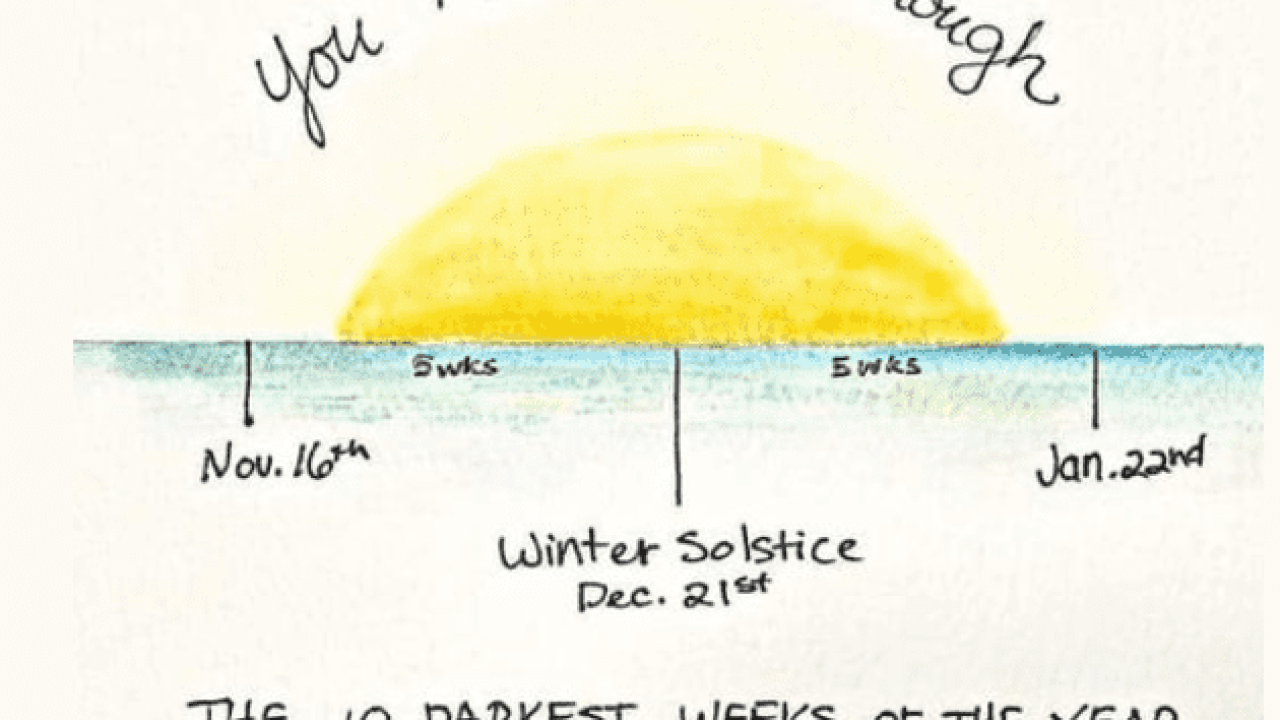 You ough
5wks 5wks
Nov. 16th Jan. 22nd
Winter Solstice
Dec. 21st
THE 10 DARKEST WEEKS OF THE YEAR